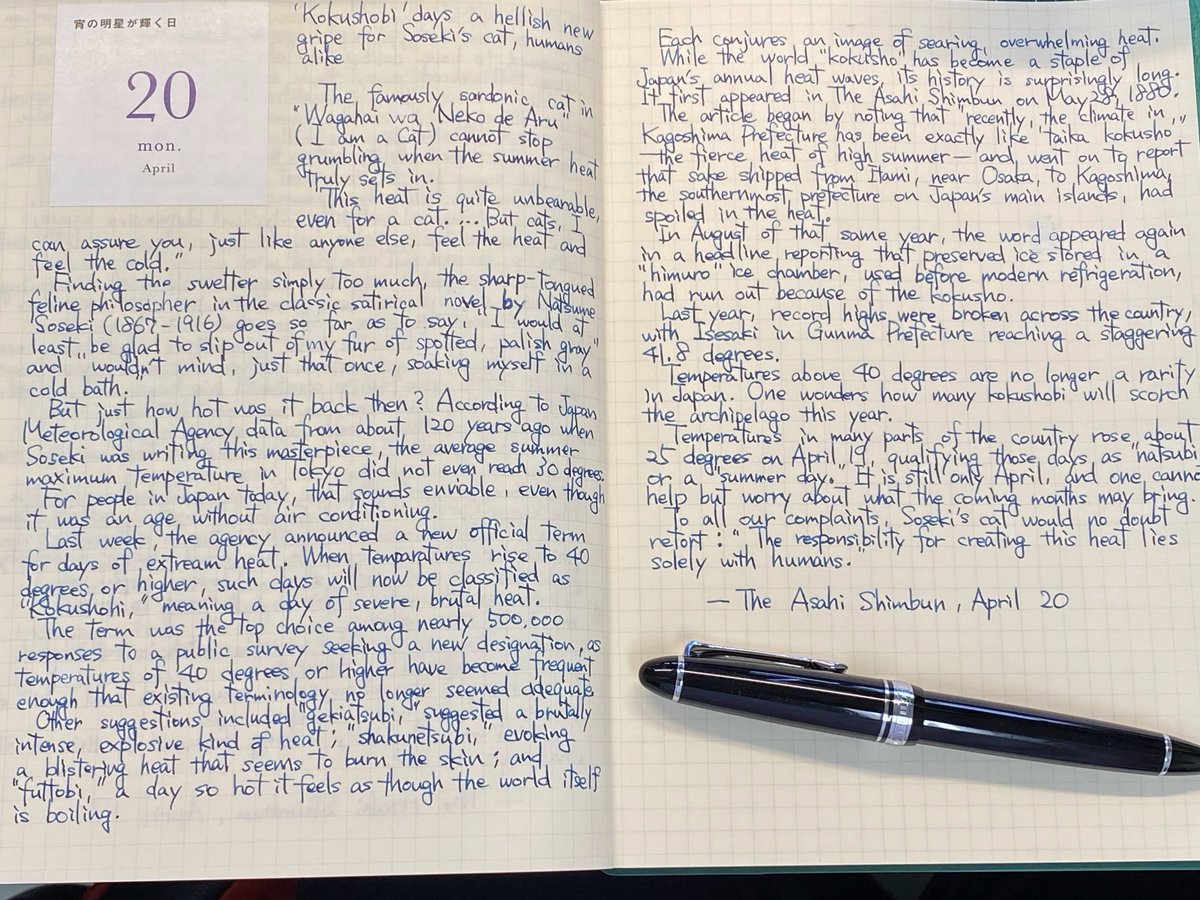 宵の明星が輝く日
20
mon.
April
'Kokushobi' days a hellish new
gripe for Soseki's cat, humans
alike
The famously sardonic cat in
"Wagahai wa Neko de Aru"
(I am a Cat) cannot stop
grumbling when the summer heat
truly sets in.
"This heat is quite unbearable,
even for a cat. ... But cats, I
can assure you, just like anyone else, feel the heat and
feel the cold."
Finding the swelter simply too much, the sharp-tongued
feline philosopher in the classic satirical novel by Natsume
Soseki (1867-1916) goes so far as to say, "I would at
least be glad to slip out of my fur of spotted, palish gray"
and "wouldn't mind, just that once, soaking myself in a
cold bath."
But just how hot was it back then? According to Japan
Meteorological Agency data from about 120 years ago when
Soseki was writing this masterpiece, the average summer
maximum temperature in Tokyo did not even reach 30 degrees.
For people in Japan today, that sounds enviable, even though
it was an age without air conditioning.
Last week, the agency announced a new official term
for days of extream heat. When temparatures rise to 40
degrees or higher, such days will now be classified as
"Kokushohi," meaning a day of severe, brutal heat.
The term was the top choice among nearly 500,000
responses to a public survey seeking a new designation, as
temperatures of 40 degrees or higher have become frequent
enough that existing terminology no longer seemed adequate
Other suggestions included "gekiatsubi," suggested a brutally
intense, explosive kind of heat; "shakunetsubi," evoking
a blistering heat that seems to burn the skin; and
"futtobi," a day so hot it feels as though the world itself
is boiling.
Each conjures an image of searing, overwhelming heat.
While the world "kokusho" has become a staple of
Japan's annual heat waves, its history is surprisingly long.
It first appeared in The Asahi Shimbun on May 28, 1880.
The article began by noting that "recently, the climate in
Kagoshima Prefecture has been exactly like 'taika kokusho'"
—the fierce heat of high summer— and went on to report
that sake shipped from Itami, near Osaka, to Kagoshima,
the southernmost prefecture on Japan's main islands, had
spoiled in the heat.
In August of that same year, the word appeared again
in a headline reporting that preserved ice stored in a
"himuro" ice chamber, used before modern refrigeration,
had run out because of the kokusho.
Last year, record highs were broken across the country,
with Isesaki in Gunma Prefecture reaching a staggering
41.8 degrees.
Temperatures above 40 degrees are no longer a rarity
in Japan. One wonders how many kokushobi will scorch
the archipelago this year.
Temperatures in many parts of the country rose about
25 degrees on April 19, qualifying those days as "natsubi"
or a "summer day." It is still only April, and one canno
help but worry about what the coming months may bring.
To all our complaints, Soseki's cat would no doubt
retort: "The responsibility for creating this heat lies
solely with humans."
— The Asahi Shimbun, April 20